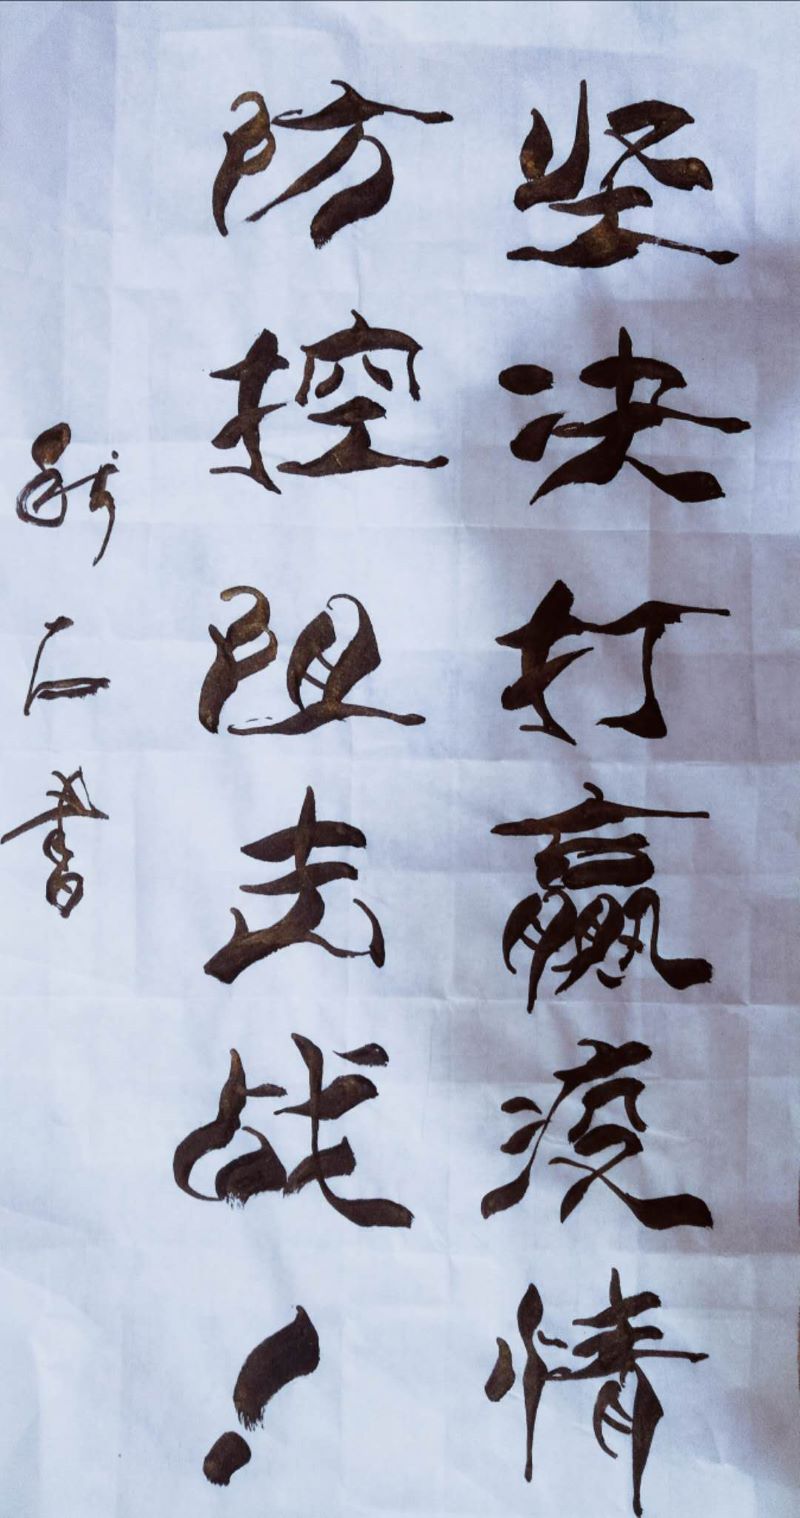 坚决打赢疫情
防控阻击战！
仁书